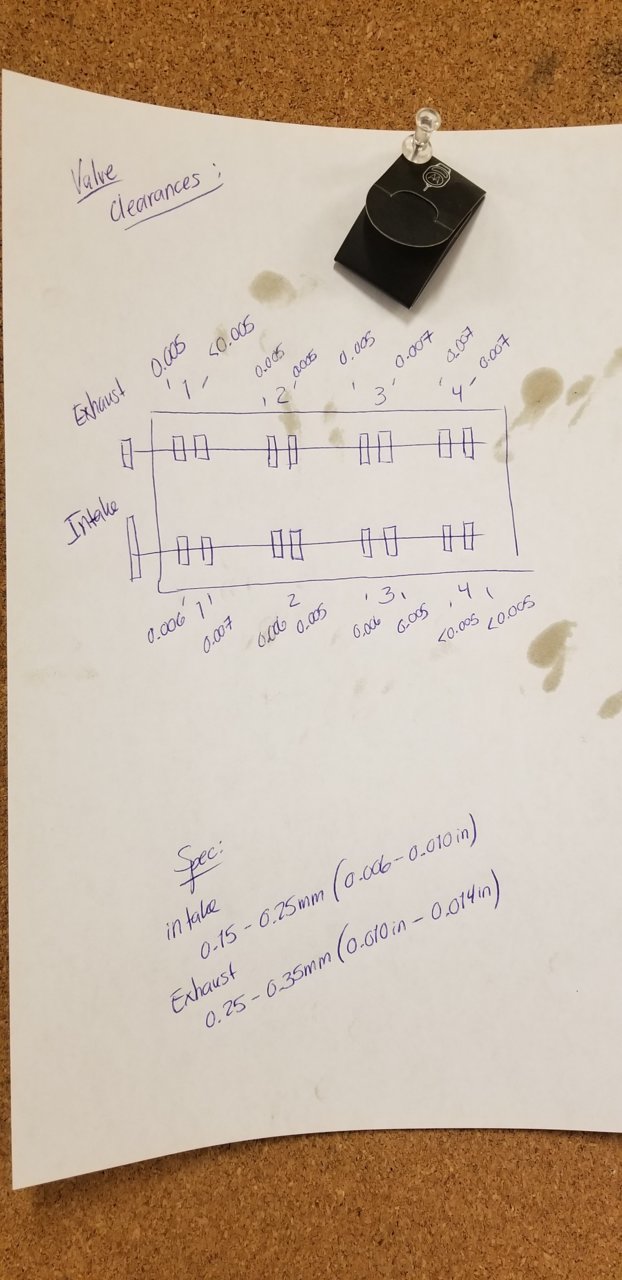 Valve
Clearances:
0.005 <0.005 0.005 0.005 0.005 0.007 0.007 0.007
Exhaust 1 2 3 4
Intake
1 2 3 4
0.006 0.007 0.006 0.005 0.006 0.005 <0.005 <0.005
Spec:
intake
0.15 - 0.25mm (0.006 - 0.010in)
Exhaust
0.25 - 0.35mm (0.010in - 0.014in)